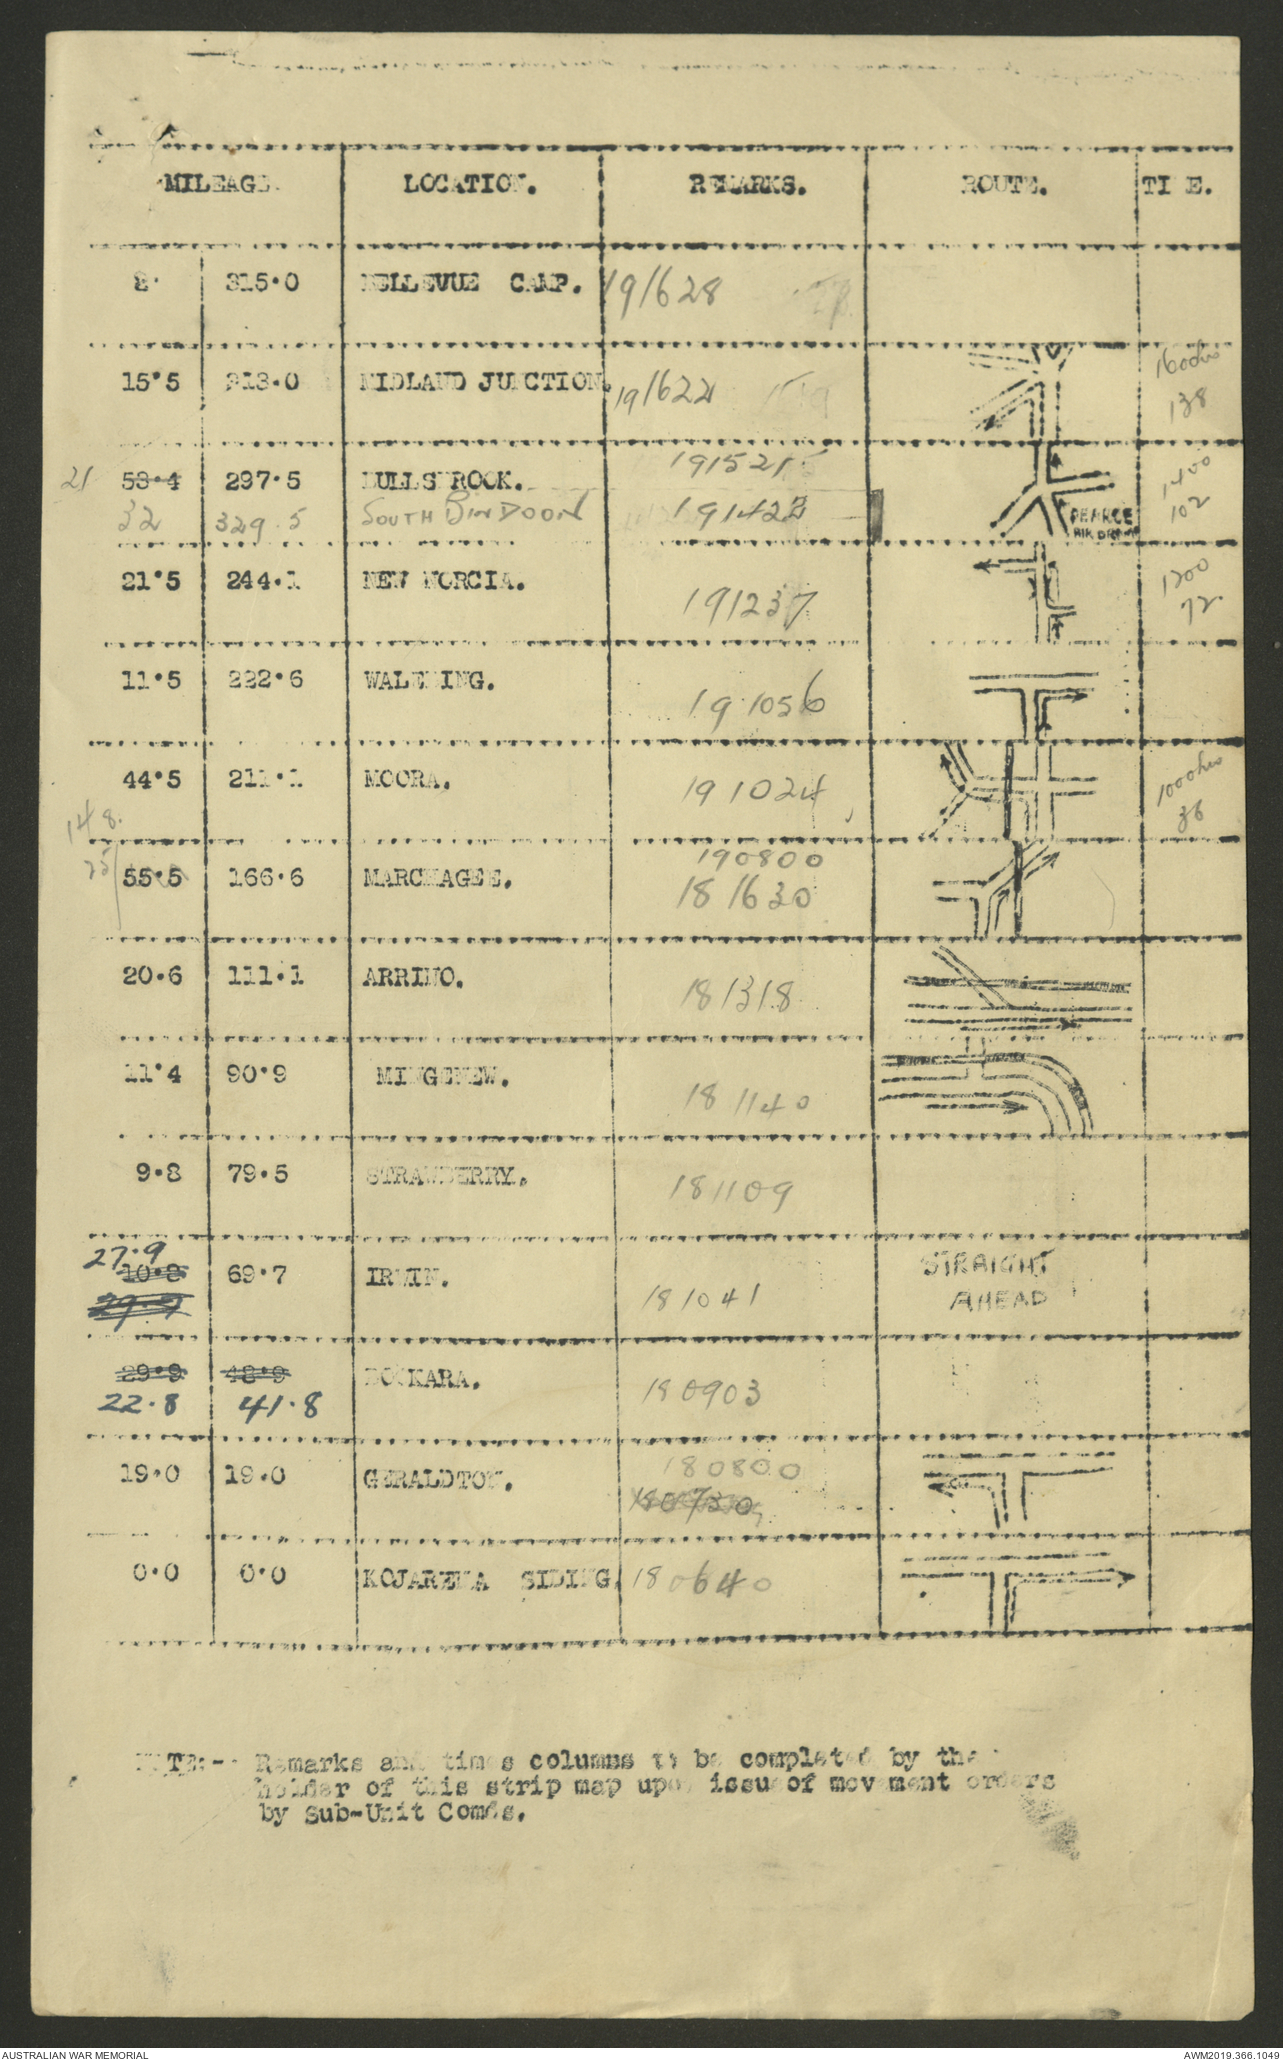 MILEAGE. LOCATION. REMARKS. ROUTE. TI E.
2. 315.0 BELLEVUE CAMP. 191628
15.5 313.0 MIDLAND JUNCTION. 191622 1600hrs
138
21 53.4 297.5 BULLSBROOK. 191521 1400
32 329.5 SOUTH BINDOON 191422 PEARCE 102
AIR DROME
21.5 244.1 NEW NORCIA. 191237 1200
72
11.5 222.6 WALEBING. 191056
44.5 211.1 MOORA. 191024 1000hrs
36
148.
25 55.5 166.6 MARCHAGEE. 190800
181630
20.6 111.1 ARRINO. 181318
11.4 90.9 MINGENEW. 181140
9.8 79.5 STRAWBERRY. 181109
27.9
10.8 69.7 IRWIN. 181041 STRAIGHT
29.9 AHEAD
29.9 48.9 BOOKARA. 180903
22.8 41.8
19.0 19.0 GERALDTON. 180800
180730
0.0 0.0 KOJARENA SIDING. 180640
NOTE:- Remarks and times columns to be completed by the
holder of this strip map upon issue of movement orders
by Sub-Unit Comds.
AUSTRALIAN WAR MEMORIAL AWM2019.366.1049